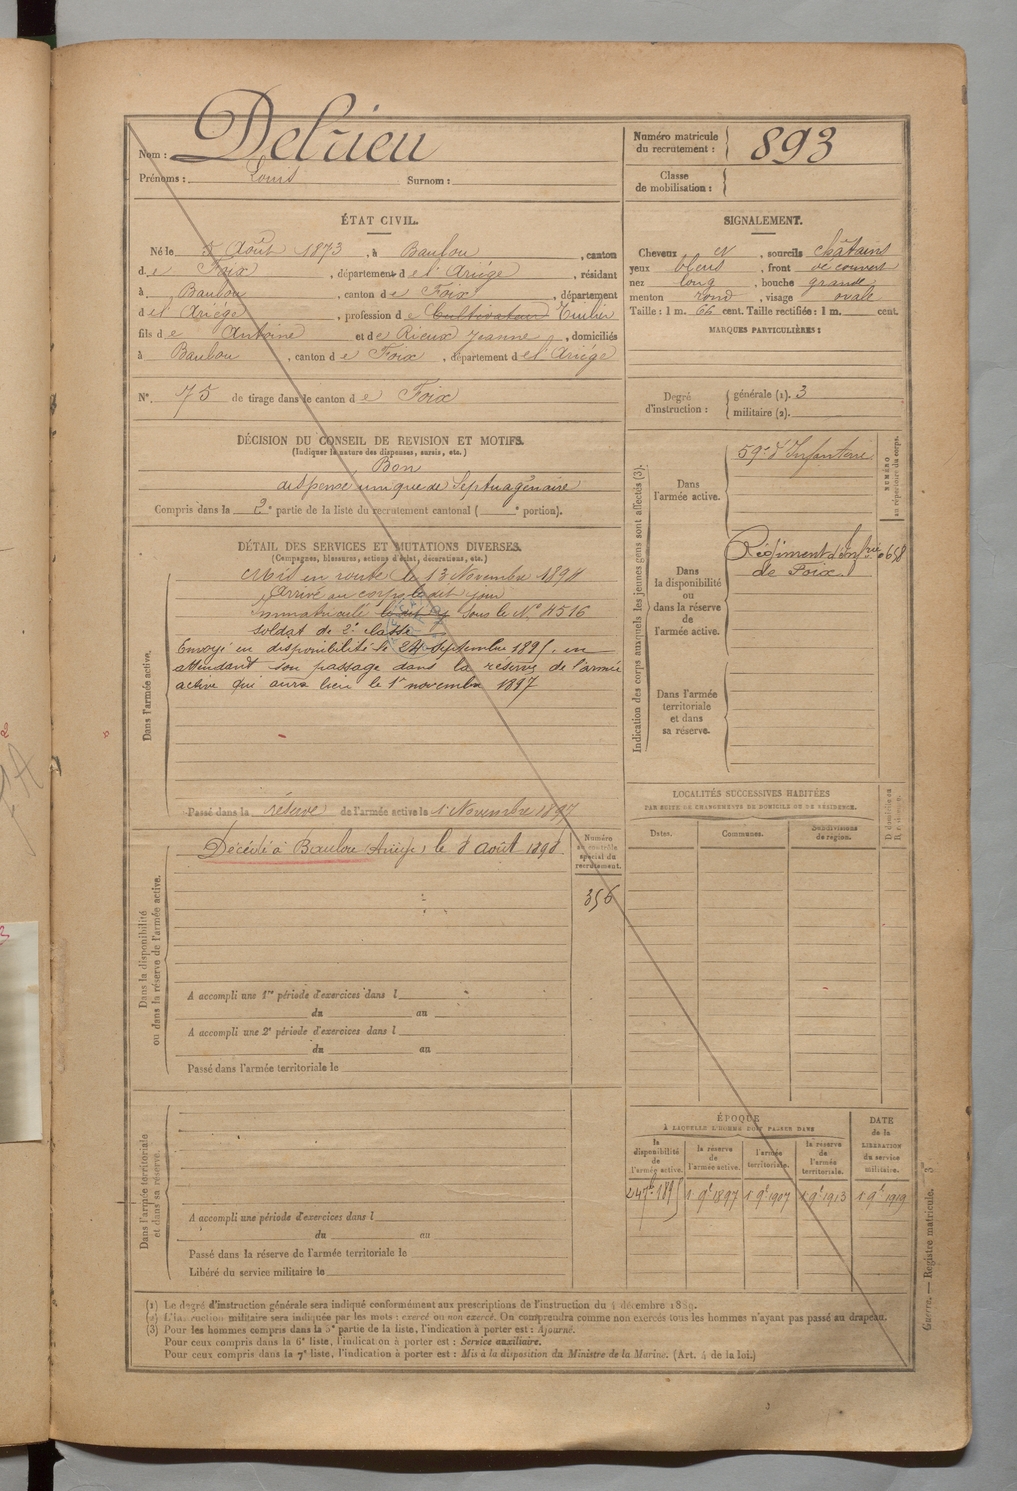 Nom : Delrieu
Prénoms : Louis Surnom :
Numéro matricule du recrutement : 893
Classe de mobilisation :
ÉTAT CIVIL.
Né le 5 Août 1873, à Baulou, canton
de Foix, département de l'Ariège, résidant
à Baulou, canton de Foix, département
de l'Ariège, profession de Cultivateur
fils de Antoine et de Rieux Jeanne, domiciliés
à Baulou, canton de Foix, département de l'Ariège
N° 75 de tirage dans le canton de Foix
SIGNALEMENT.
Cheveux et, sourcils châtains
yeux bleus, front découvert
nez long, bouche grande
menton rond, visage ovale
Taille : 1 m. 66 cent. Taille rectifiée : 1 m. cent.
MARQUES PARTICULIÈRES :
Degré d'instruction :
générale (1). 3
militaire (2).
DÉCISION DU CONSEIL DE REVISION ET MOTIFS.
(Indiquer la nature des dispenses, sursis, etc.)
Bon
dispensé unique de Septuagénaire
Compris dans la 2e partie de la liste du recrutement cantonal ( e portion).
DÉTAIL DES SERVICES ET MUTATIONS DIVERSES.
(Campagnes, blessures, actions d'éclat, décorations, etc.)
Dans l'armée active.
Mis en route le 13 Novembre 1894
Arrivé au corps le dit jour
immatriculé sous le N° 4516
soldat de 2e classe
Envoyé en disponibilité le 24 septembre 1895, en
attendant son passage dans la réserve de l'armée
active qui aura lieu le 1er novembre 1897
Passé dans la réserve de l'armée active le 1er Novembre 1897
Indication des corps auxquels les jeunes gens sont affectés (3).
NUMÉRO au répertoire du corps.
Dans l'armée active.
59e d'Infanterie
Dans la disponibilité ou dans la réserve de l'armée active.
Régiment d'Infrie
de Foix
Dans l'armée territoriale et dans sa réserve.
Dans la disponibilité ou dans la réserve de l'armée active.
Décédé à Baulou (Ariège) le 8 août 1898
Numéro au contrôle spécial du recrutement.
356
A accompli une 1re période d'exercices dans l
du au
A accompli une 2e période d'exercices dans l
du au
Passé dans l'armée territoriale le
LOCALITÉS SUCCESSIVES HABITÉES
PAR SUITE DE CHANGEMENTS DE DOMICILE OU DE RÉSIDENCE.
Dates. Communes. Subdivisions de région.
Dans l'armée territoriale et dans sa réserve.
A accompli une période d'exercices dans l
du au
Passé dans la réserve de l'armée territoriale le
Libéré du service militaire le
ÉPOQUE
À LAQUELLE L'HOMME DOIT PASSER DANS
la disponibilité de l'armée active.
la réserve de l'armée active.
l'armée territoriale.
la réserve de l'armée territoriale.
DATE de la LIBÉRATION du service militaire.
24 7bre 1895 1 9e 1897 1 9e 1907 1 9e 1913 1 9e 1919
(1) Le degré d'instruction générale sera indiqué conformément aux prescriptions de l'instruction du 4 décembre 1889.
(2) L'instruction militaire sera indiquée par les mots : exercé ou non exercé. On comprendra comme non exercés tous les hommes n'ayant pas passé au drapeau.
(3) Pour les hommes compris dans la 5e partie de la liste, l'indication à porter est : Ajourné.
Pour ceux compris dans la 6e liste, l'indication à porter est : Service auxiliaire.
Pour ceux compris dans la 7e liste, l'indication à porter est : Mis à la disposition du Ministre de la Marine. (Art. 4 de la loi.)
Guerre. — Registre matricule. 3